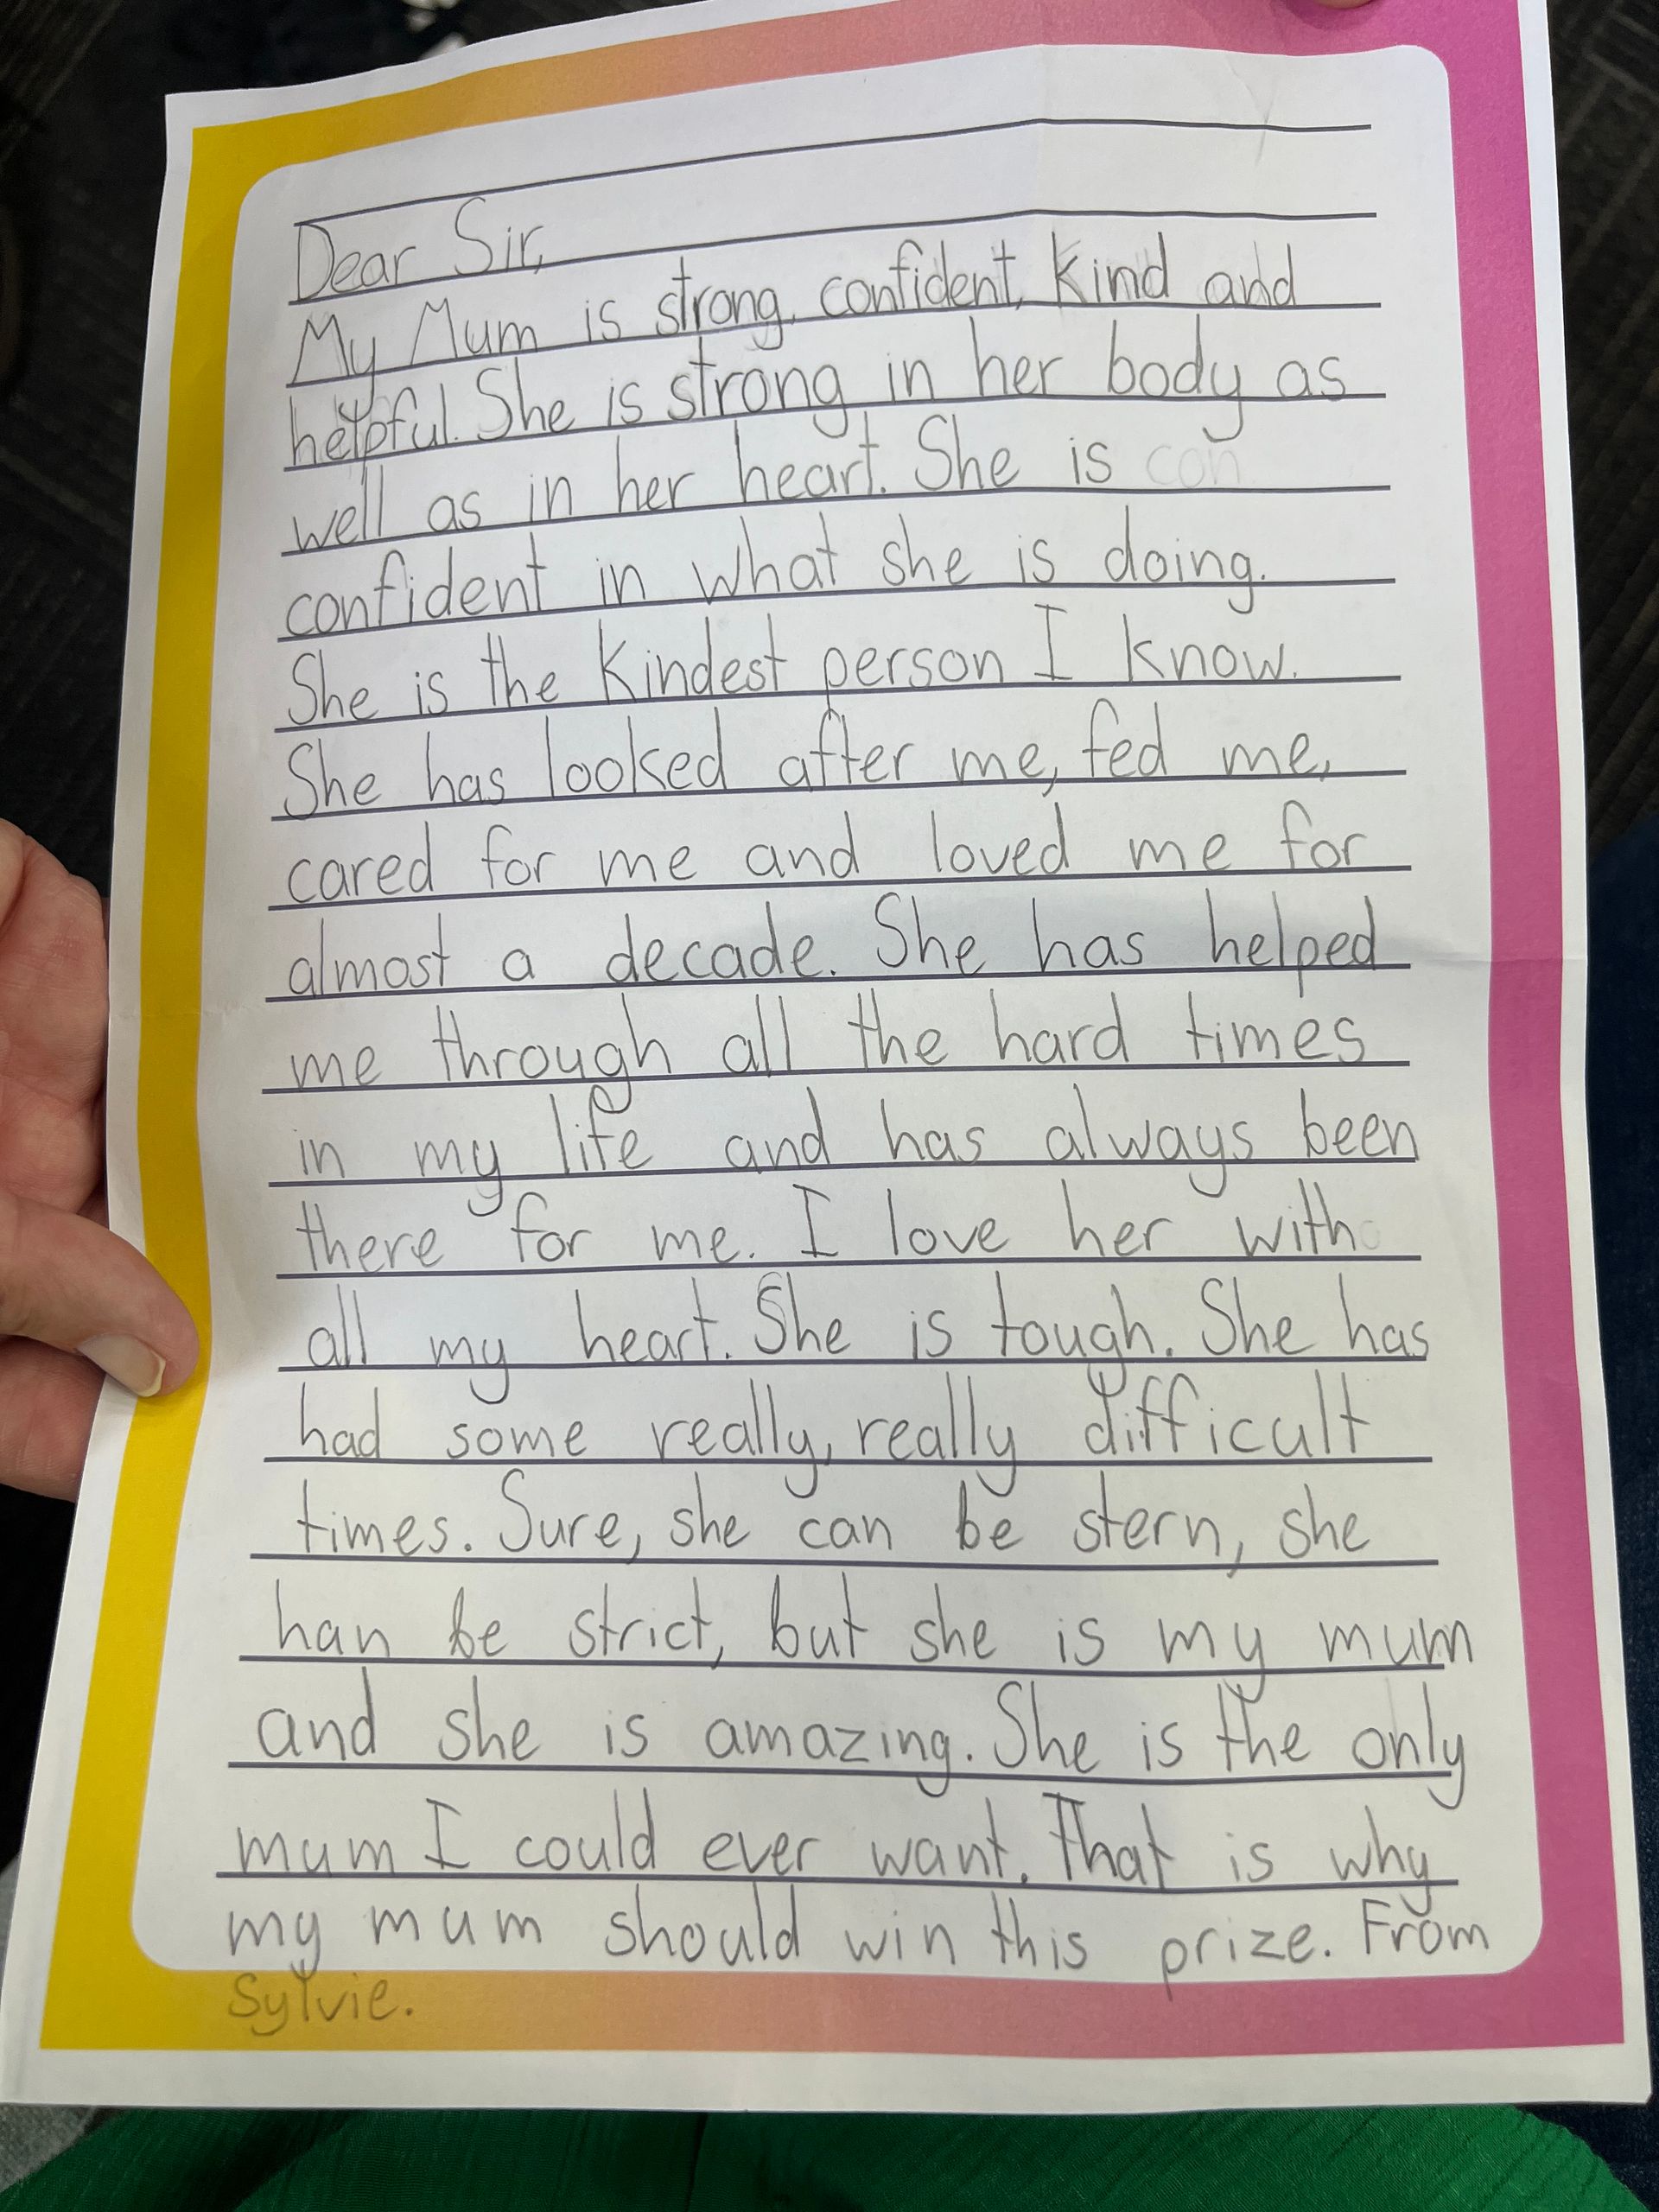 Dear Sir,
My Mum is strong, confident, kind and
helpful. She is strong in her body as
well as in her heart. She is con
confident in what she is doing.
She is the kindest person I know.
She has looked after me, fed me,
cared for me and loved me for
almost a decade. She has helped
me through all the hard times
in my life and has always been
there for me. I love her with
all my heart. She is tough. She has
had some really, really difficult
times. Sure, she can be stern, she
han be strict, but she is my mum
and she is amazing. She is the only
mum I could ever want. That is why
my mum should win this prize. From
Sylvie.